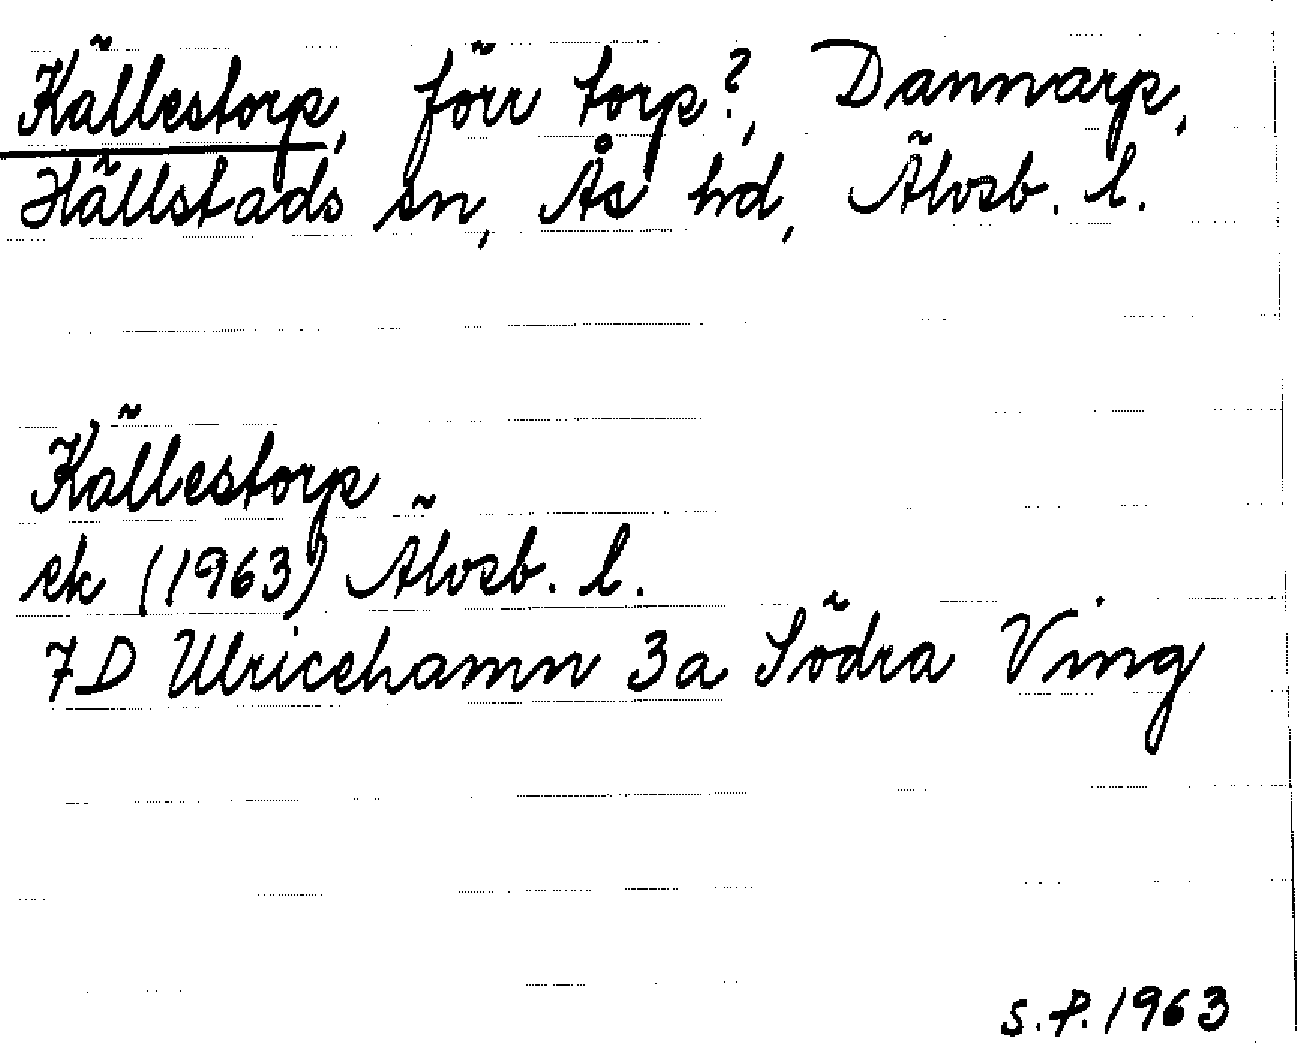 Källestorp, förr torp?, Dannarp,
Hällstads sn, Ås hd, Älvsb. l.
Källestorp
ek (1963) Älvsb. l.
7D Ulricehamn 3a Södra Ving
S.P. 1963